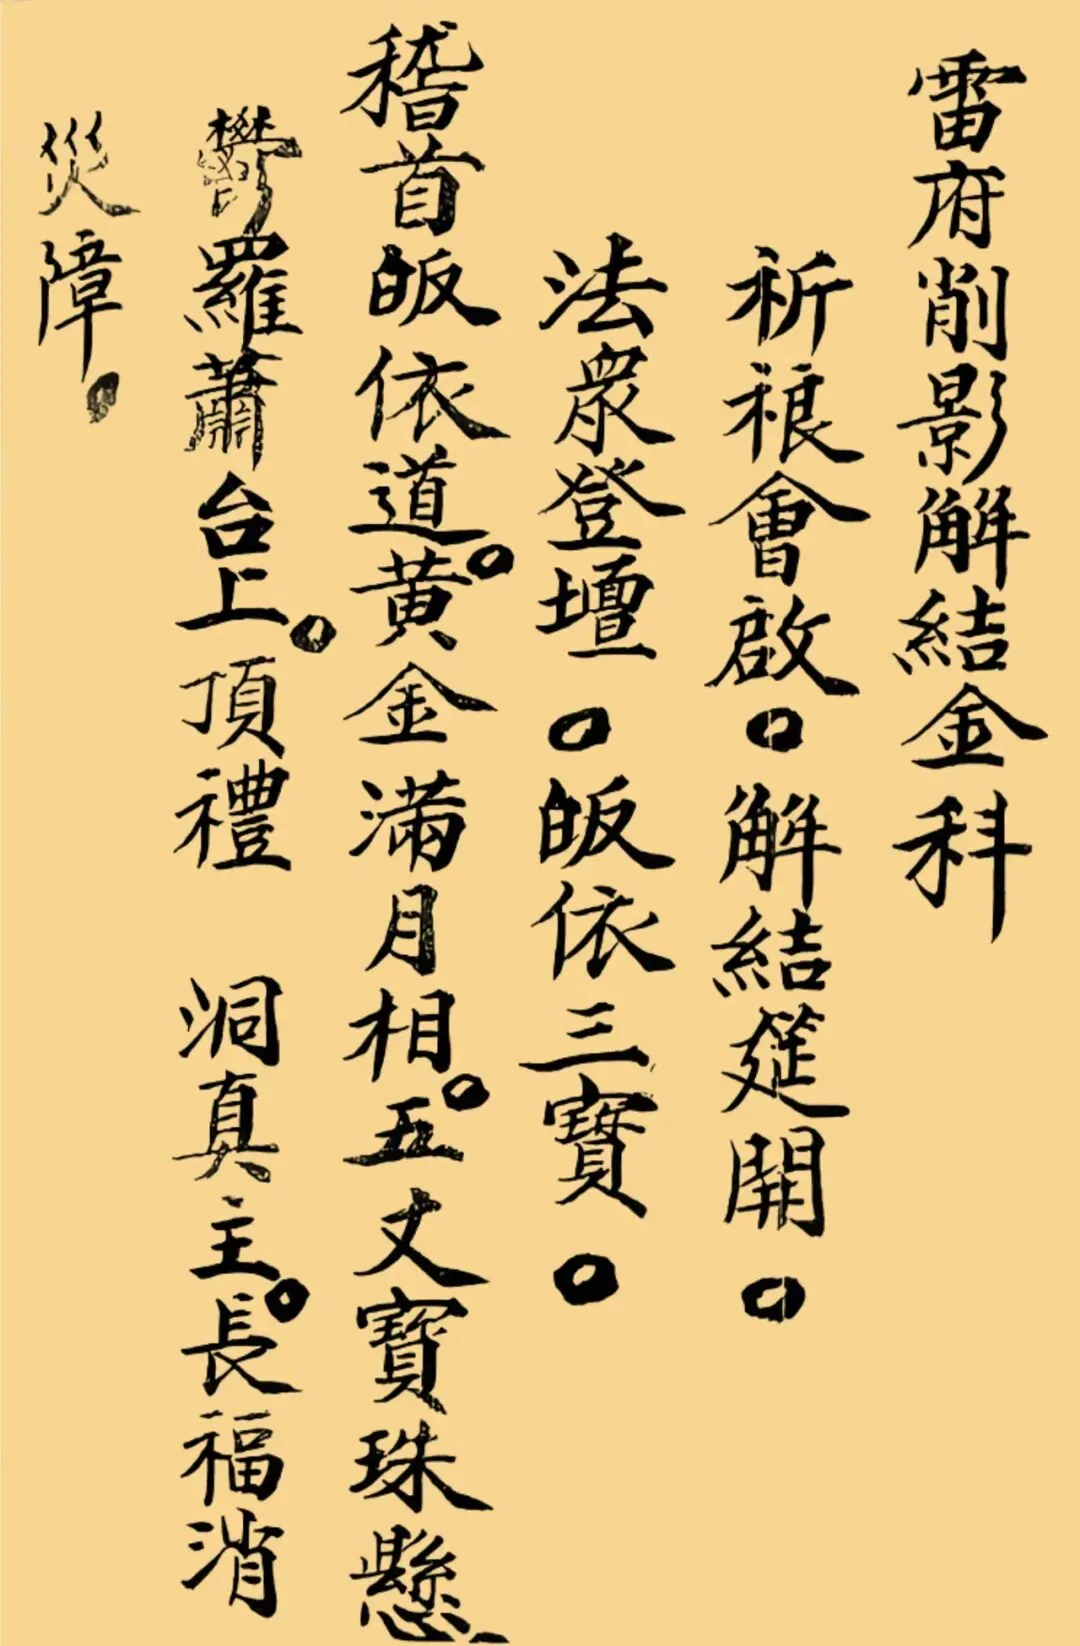 雷府削影解結金科
祈禳會啟。解結筵開。
法眾登壇。皈依三寶。
稽首皈依道。黃金滿月相。五丈寶珠懸
鬱羅蕭台上。頂禮　洞真主。長福消
災障。